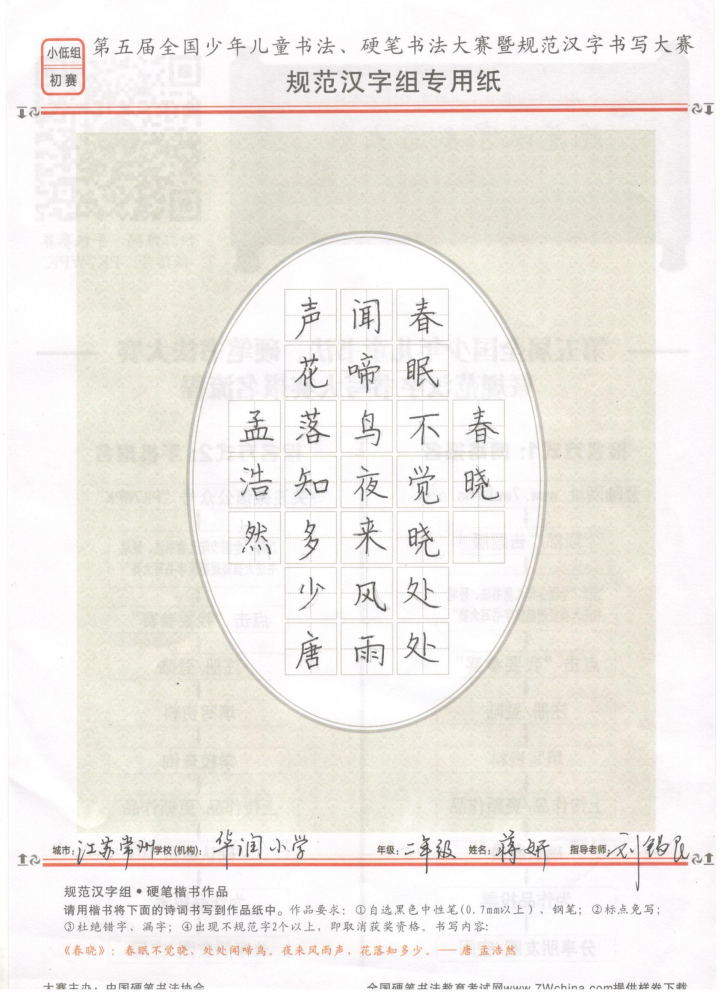 小低组
初赛
第五届全国少年儿童书法、硬笔书法大赛暨规范汉字书写大赛
规范汉字组专用纸
春晓
春眠不觉晓处处
闻啼鸟夜来风雨
声花落知多少唐
孟浩然
城市：江苏常州 学校(机构)：华润小学 年级：二年级 姓名：蒋妍 指导老师：刘锡良
规范汉字组•硬笔楷书作品
请用楷书将下面的诗词书写到作品纸中。作品要求：①自选黑色中性笔(0.7mm以上)、钢笔；②标点免写；
③杜绝错字、漏字；④出现不规范字2个以上，即取消获奖资格。书写内容：
《春晓》：春眠不觉晓，处处闻啼鸟。夜来风雨声，花落知多少。——唐 孟浩然
大赛主办：中国硬笔书法协会 全国硬笔书法教育考试网www.7Wchina.com提供样卷下载